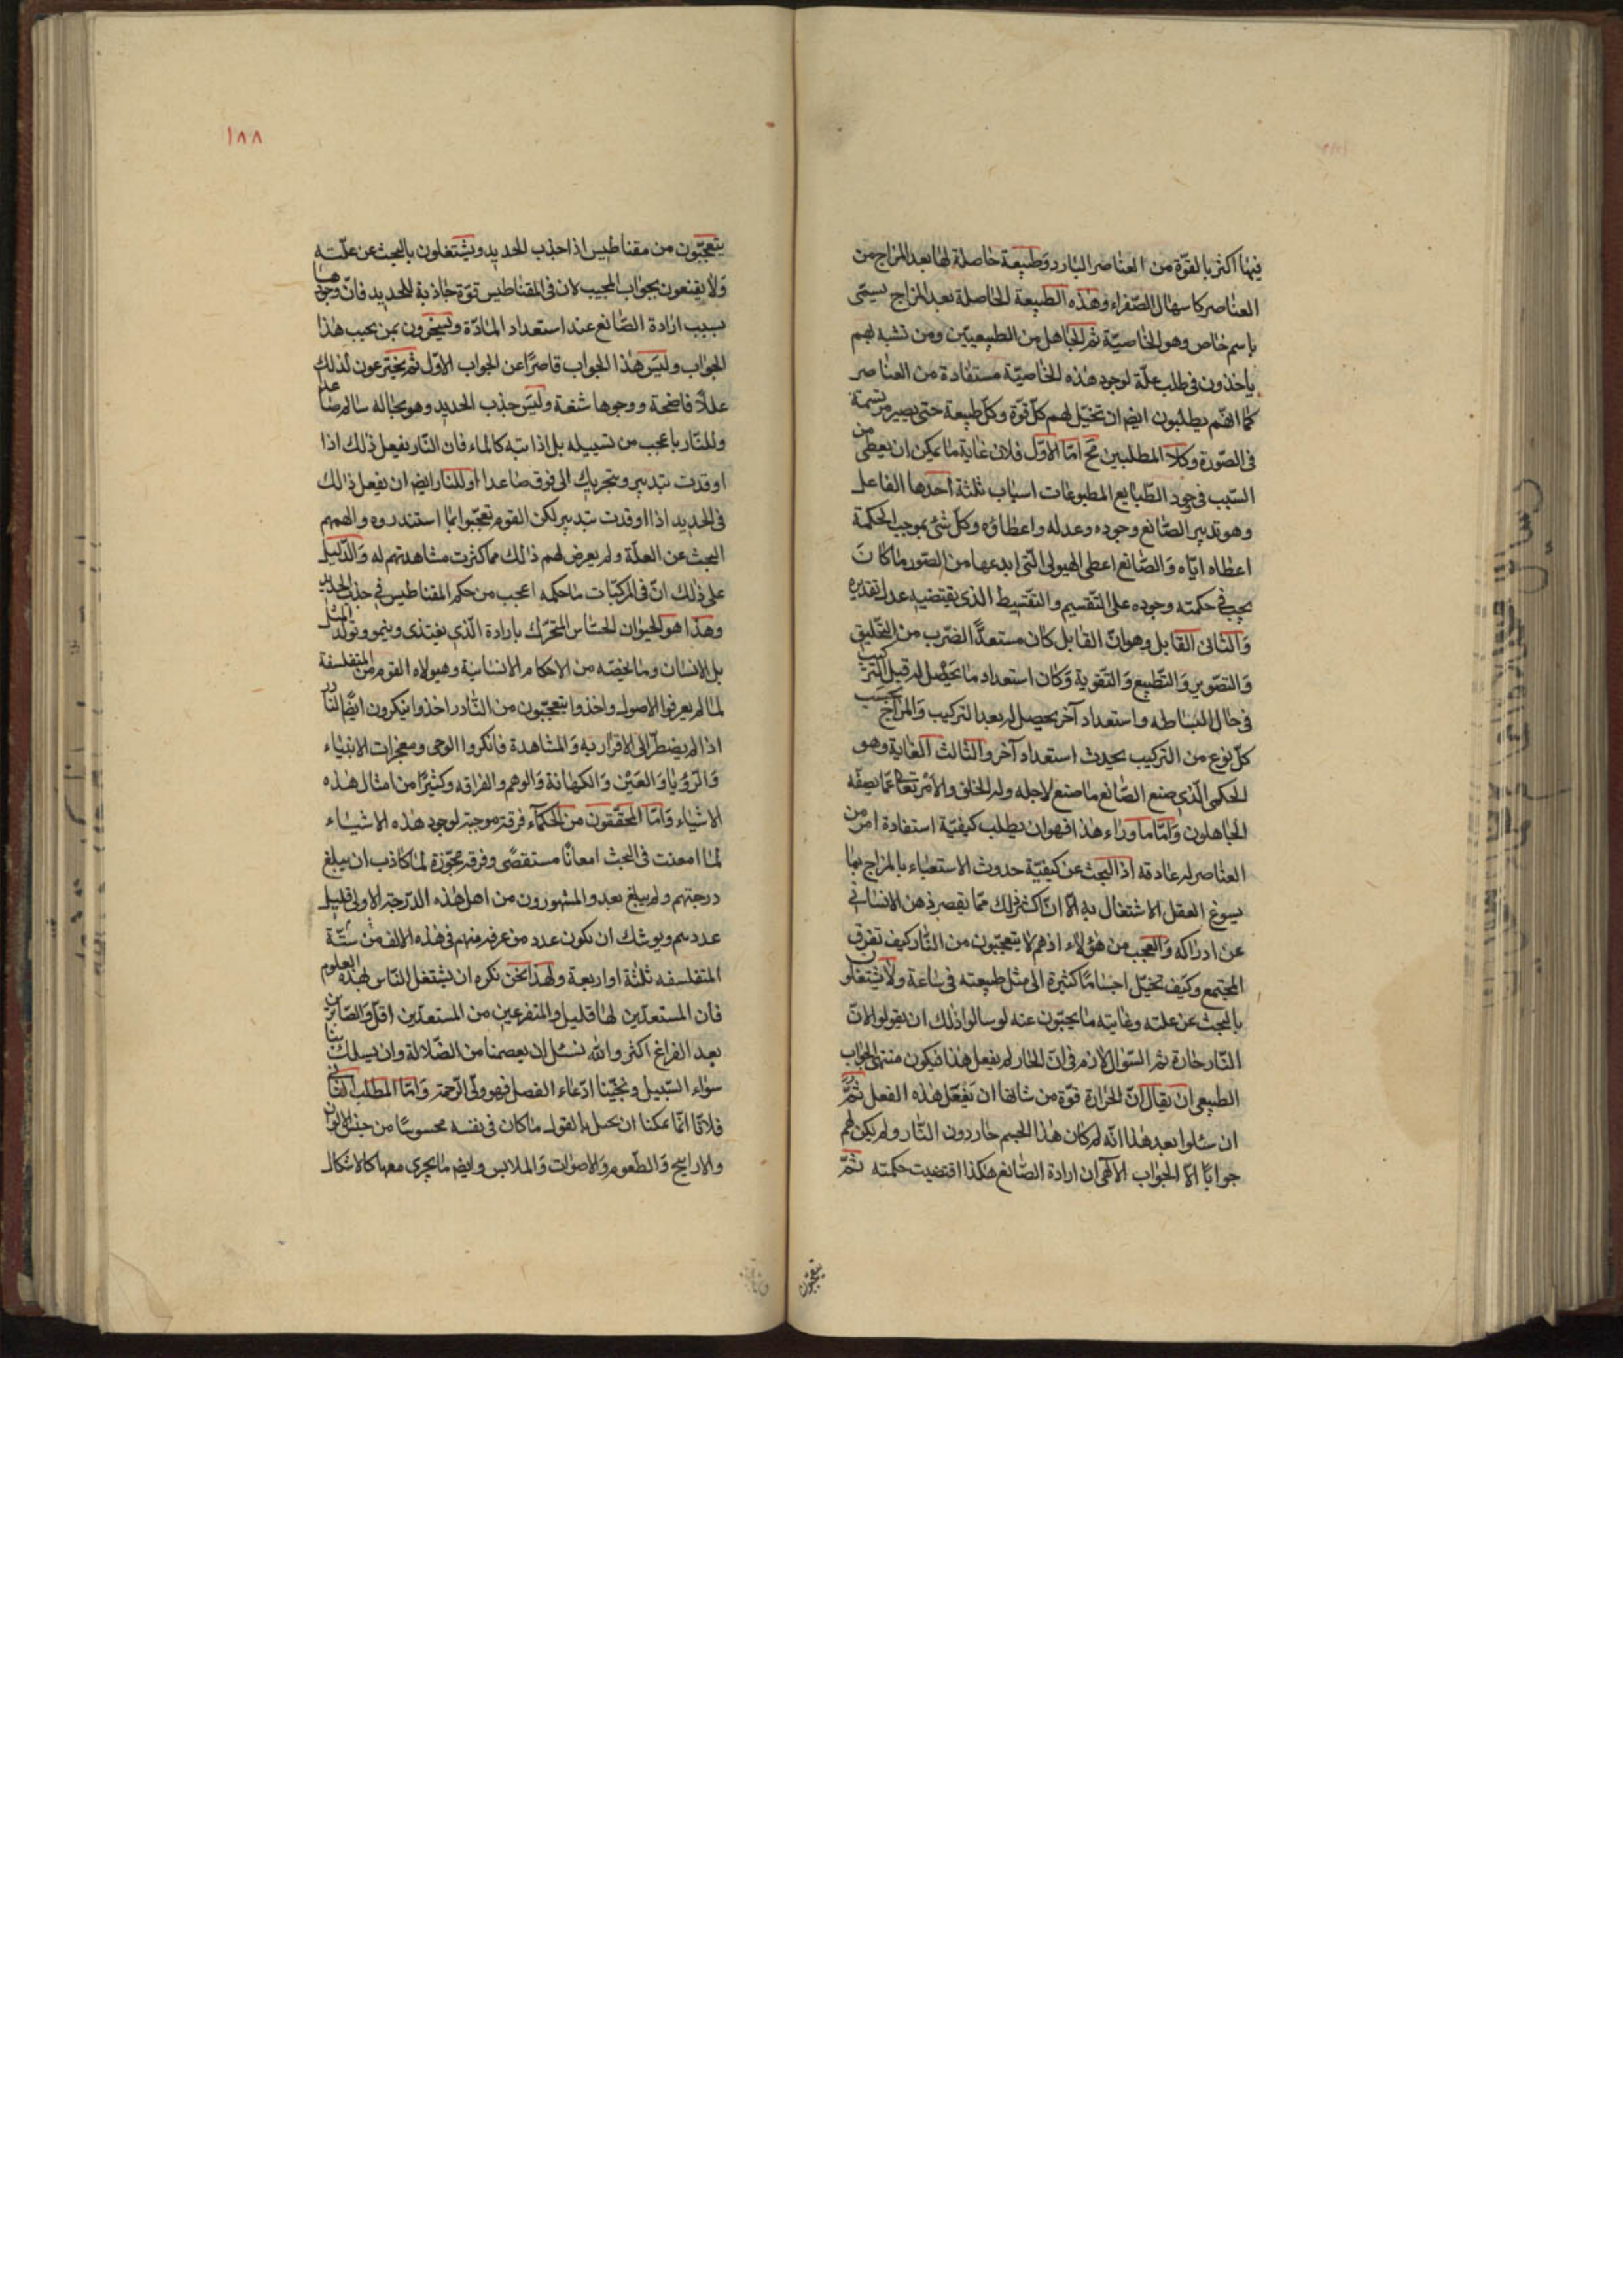 فيها اكثر بالقوّة من العناصر البارد وطبيعة حاصلة لها بعد المزاج من
العناصر كاسهال الصّفراء وهذه الطبيعة الحاصلة بعد المزاج يسمّى
باسم خاص وهو الخاصيّة ثم الجاهل من الطبيعيّين ومن تشبه بهم
ياخذون فى طلب علّة لوجود هذه الخاصيّة مستفادة من العناصر
كما انّهم يطلبون ايضم ان تخيّل لهم كلّ قوّة وكلّ طبيعة حتى يصير مرتسمة
فى الصّورة وكلا المطلبين مح امّا الاوّل فلان غاية ما يمكن ان يعطى من
السّبب فى وجود الطّبايع المطبوعات اسباب ثلثة احدها الفاعل
وهو تدبير الصّانع وجوده وعدله واعطاؤه وكلّ شئ بموجب الحكمة
اعطاه ايّاه والصّانع اعطى الهيولى الّتى ابدعها من الصّور ما كان
يجب فى حكمته وجوده على التّقسيم والتّقسيط الذى يقتضيه عدل تقديره
والثانى القابل وهو انّ القابل كان مستعدًّا لضرب من التخليق
والتصّوير والتّطبيع والتّقوية وكان استعداد ما يحصل له قبل التركيب
فى حال البساطه واستعداد آخر يحصل له بعد التركيب والمزاج بحسب
كلّ نوع من التركيب يحدث استعداد آخر والثالث الغاية وهو
الحكمى الّذى صنع الصّانع ما صنع لاجله وله الخلق والامر تعا عمّا يصفه
الجاهلون وامّا ما وراء هذا فهو ان يطلب كيفيّة استفادة امر من
العناصر له عادقه اذ البحث عن كيفيّة حدوث الاستعباء بالمزاج بما
يسوغ العقل الاشتغال به الّا انّ اكثر ذلك ممّا يقصر ذهن الانسانى
عن ادراكه والعجب من هؤلاء اذ هم لا يتعجّبون من النّار كيف تفرق
المجتمع وكيف تخيّل اجسامًا كثيرة الى مثل طبيعته فى ساعة ولا يشتغلون
بالبحث عن علته وغايته ما يجيّبون عنه لو سالوا ذلك ان يقولوا لانّ
النّار حارة ثم السّؤال لازم فى انّ الحار لم يفعل هذا فيكون منتهى الجواب
الطبيعى ان يقال انّ الحرارة قوّة من شانها ان تفعل هذه الفعل ثمّ
ان سئلوا بعد هذا انّه لم كان هذا الجسم حار دون النّار ولم يكن لهم
جوابًا الّا الجواب الالهى ان ارادة الصّانع هكذا اقتضيت حكمته ثمّ
يتعجّبون
١٨٨
يتعجّبون من مقناطيس اذا جذب الحديد ويشتغلون بالبحث عن علّته
ولا يقنعون بجواب المجيب لان فى المقناطيس قوّة جاذبة للحديد فانّ وجودها
بسبب ارادة الصّانع عند استعداد المادّة ويسخرون بمن يجيب هذا
الجواب وليس هذا الجواب قاصرًا عن الجواب الاوّل ثم يخترعون لذلك
عللًا فاضحة ووجوها شنعة وليس جذب الحديد وهو بحاله سالم صاعدا
وللنّار باعجب من تسييله بل اذابته كالماء فان النّار يفعل ذلك اذا
اوقدت بتدبير وبتحريك الى فوق صاعدا او للنار ايضم ان يفعل ذلك
فى الحديد اذا اوقدت بتدبير لكن القوم تعجّبوا بما استندروه والهمهم
البحث عن العلّة ولم يعرض لهم ذلك مما كثرت مشاهدتهم له والدّليل
على ذلك انّ فى المركبّات ما حكمه اعجب من حكم المقناطيس فى جذب الحديد
وهذا هو الحيوان الحسّاس المتحرّك بارادة الّذى يغتذى وينمو وتولّد المثل
بل الانسان وما يخصّه من الاحكام الانسانية وهيولاه القوم من المتفلسفة
لما لم يعرفوا الاصول واخذوا يتعجّبون من النّادر اخذوا ينكرون ايضًا النادر
اذا لم يضطرّ الى الاقرار به والمشاهدة فانكروا الوحى ومعجزات الانبياء
والرؤيا والعين والكهانة والوهم والفراقه وكثيرًا من امثال هذه
الاشياء وامّا المحقّقون من الحكماء فرقة موجبة لوجود هذه الاشياء
لما امعنت فى البحث امعانًا مستقصًى وفرقة مجوّزة لما كاذب ان يبلغ
درجتهم ولم يبلغ بعد والمشهورون من اهل هذه الدّرجة الاولى قليل
عددهم ويوشك ان يكون عدد من عرف منهم فى هذه الالف من ستّة
المتفلسفه ثلثة او اربعة ولهذا نحن نكره ان يشتغل النّاس لهذه العلوم
فانّ المستعدّين لها قليل والمتفرعين من المستعدّين اقلّ والصّابرين
بعد الفراغ اكثر والله نسئل ان يعصمنا من الضّلالة وان يسلك بنا
سواء السّبيل ونجّينا ادّعاء الفصل فهو ولّى الرّحمة وامّا المطلب الثانى
فلانّا انّما يمكننا ان نحيل بالقول ما كان فى نفسه محسوسًا من جنس الالوان
والاراييح والطّعوم والاصوات والملابس وايضم ما يجرى معها كالاشكال